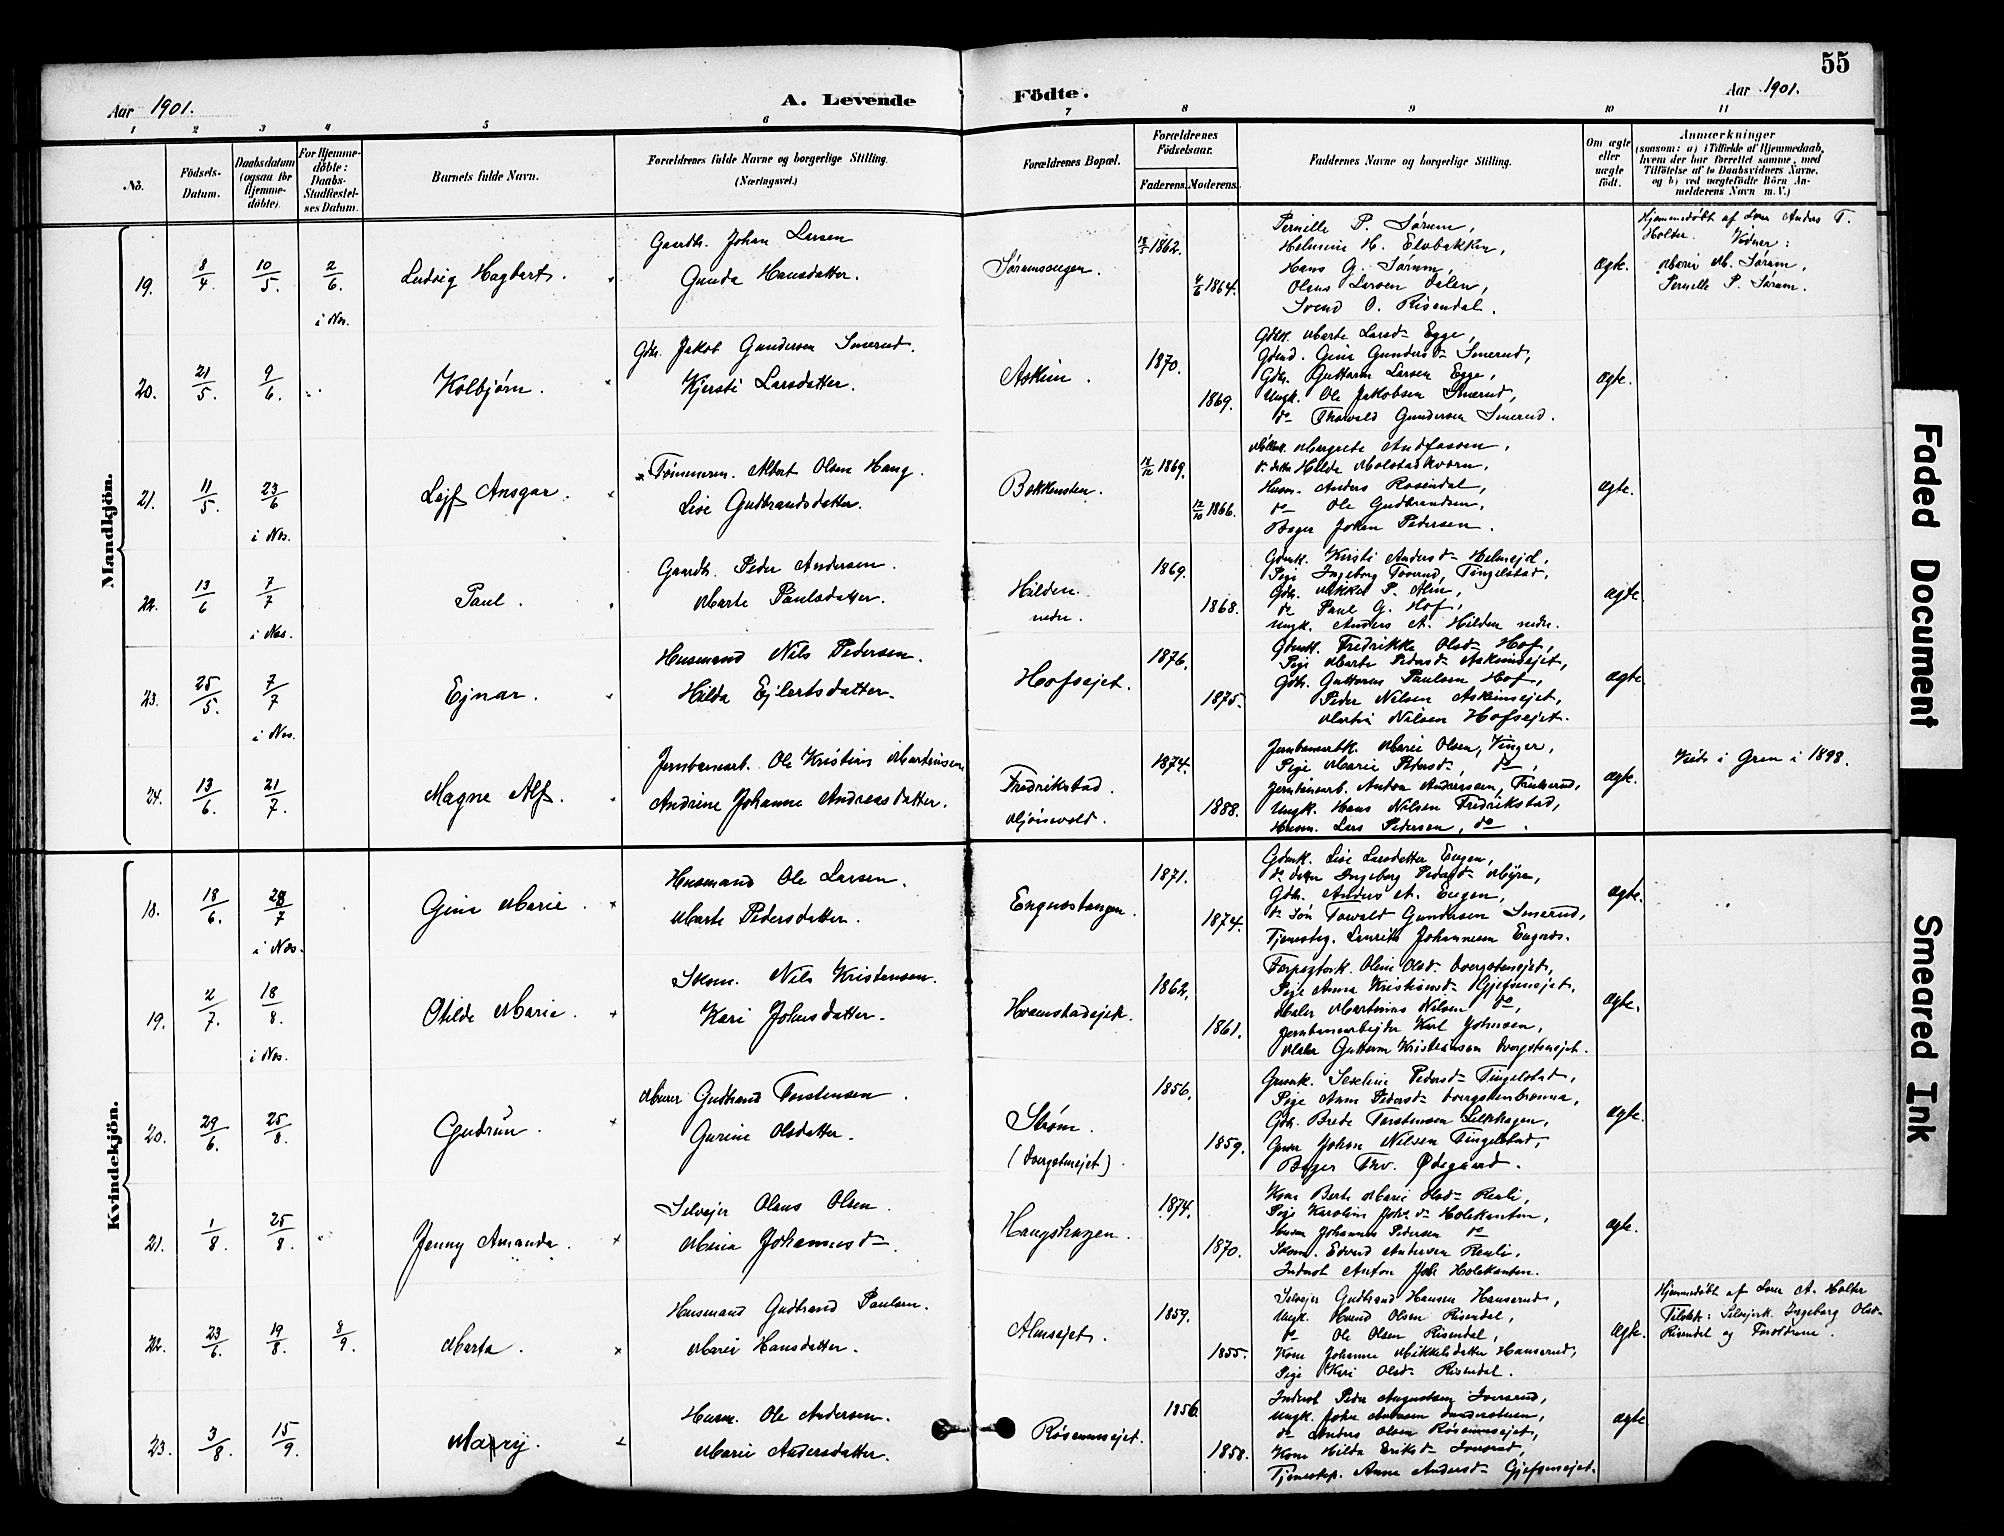 55
Aar 1901.
A. Levende Födte.
Aar 1901.
1 2 3 4 5 6 7 8 9 10 11
No.
Födsels-Datum.
Daabsdatum (ogsaa for Hjemme-döbte).
For Hjemme-döbte: Daabs-Stadfæstel-ses Datum.
Barnets fulde Navn.
Forældrenes fulde Navne og borgerlige Stilling. (Næringsvei.)
Forældrenes Bopæl.
Forældrenes Födselsaar.
Faderens. Moderens.
Faddernes Navne og borgerlige Stilling.
Om ægte eller uægte födt.
Anmærkninger
(saasom: a) i Tilfælde af Hjemmedaab, hvem der har forrettet samme, med Tilföielse af to Daabsvidners Navne, og b) ved uægtefödte Börn An-melderens Navn m. V.)
Mandkjön.
19. 8/4 10/5 2/6 i Næs.
Ludvig Hagbart.
Gaardbr. Johan Larsen
Gunda Hansdatter.
1862.
1864.
Pernille P. Sørum,
Helmine H. Elvbakken,
Hans G. Sørum,
Olaus Larsen Dalen,
Svend O. Risendal.
Ægte.
Hjemmedøbt af Lærer Anders T.
Holter. Vidner:
Marie M. Sørum,
Pernille P. Sørum.
20. 21/5 9/6
Kolbjørn.
Gdbr. Jakob Gundersen Smerud.
Kjersti Larsdatter.
Askim.
1870.
1869.
Gdbk. Marte Larsd- Egge,
Gina Gundersd- Smerud,
Gdbr. Guttorm Larsen Egge,
Ungk. Ole Jakobsen Smerud,
do Thorvald Gundersen Smerud.
Ægte.
21. 11/5 23/6 i Næs.
Lejf Ansgar.
Tømmerm. Albert Olsen Haug.
Lise Gudbrandsdatter.
Bakkensten.
1869.
1866.
Margrete
d. datter Hilda Molstadkværn,
Husm. Anders Rosendal,
do Ole Gudbrandsen,
Bager Johan Pedersen.
Ægte.
22. 13/6 7/7 i Næs.
Paul.
Gaardb. Peder Andersen.
Marte Paulsdatter.
Hilden nedre.
1869.
1868.
Gdmk. Kirsti Andersd- Helmejd,
Pige Ingeborg Toverud, Tingelstad,
Gdb. Mikkel P. Alm,
do Paul G. Hof,
Ungk. Anders A. Hilden nedre.
Ægte.
23. 25/5 7/7 i Næs.
Ejnar.
Husmand Nils Pedersen.
Hilda Ejlertsdatter.
Hofsejet.
1876.
1875.
Gdmk. Fredrikke Olsd- Hof,
Pige Marte Pedersd- Askimsejet,
Gdb. Guttorm Paulsen Hof,
Peder Nilsen Askimsejet,
Martin Nilsen Hofsejet.
Ægte.
24. 13/6 21/7
Magne Alf.
Jernbanearb. Ole Kristian Martinsen
Andrine Johanne Andreasdatter.
Fredrikstad.
1874.
1888.
Jernbanearbk. Marie Olsen, Vinger,
Pige Marie Pedersd-, do,
Jernbanearb. Anton Andreassen,
Ungk. Hans Nilsen Fredrikstad,
Husm. Lars Pedersen, do.
Ægte.
Viede i Gran i 1898.
Kvindekjön.
18. 18/6 28/7 i Næs.
Gina Marie.
Husmand Ole Larsen.
Marte Pedersdatter.
Engnæstangen.
1871.
1874.
Gdmk. Lise Larsdatter Engen,
d. datter Ingeborg Pedersd- Myra,
Gdb. Anders A. Engen,
d. Søn Torvald Gundersen Smerud,
Tjenesteg. Laurits Johannesen Engnæs.
Ægte.
19. 2/7 18/8 i Næs.
Otilde Marie.
Skom. Nils Kristensen.
Kari Johnsdatter.
Hvamstadejet.
1862.
1861.
Oline Olsd- Dvergstenejet,
Pige Anna Kristiansd- Gjefsenejet,
Maler Martinius Nilsen do,
Jernbanearbejder Karl Johnsen,
Maler Guttorm Kristiansen Dvergstenejet.
Ægte.
20. 29/6 25/8
Gudrun.
Murer Gudbrand Torstensen.
Gurine Olsdatter.
Strøm.
(Dvergstenejet).
1856.
1859.
Seseline Pedersd- Tingelstad,
Pige Anne Pedersd- Dvergstenbrønna,
Gdb. Brede Torstensen
Johan Nilsen Tingelstad,
Bager Thv. Ødegaard.
Ægte.
21. 1/8 25/8
Jenny Amanda.
Selvejer Olaus Olsen.
Mina Johannesd-
Haugshagen.
1874.
1870.
Kone Berte Marie Olsd-
Pige Karoline Johs d- Holekanten,
Husm Johannes Pedersen do
Skom. Edvard Andersen
Inderst Anton Joh Holekanten.
Ægte.
22. 23/6 19/8 8/9
Marta.
Husmand Gudbrand Paulsen.
Marie Hansdatter.
Almsejet.
1859.
1855.
Selvejer Gudbrand Hansen Hanserud,
Ungk. Olsen Risendal,
do Ole Olsen Risendal,
Kone Johanne Mikkelsdatter Hanserud,
Pige Kari Olsd- Risendal.
Ægte.
Hjemmedøbt af Lærer A. Holter
Tilstede: Selvejerk. Ingeborg Olsd-
Risendal og Forældrene.
23. 3/8 15/9
Mary.
Husm. Ole Andersen.
Marie Andersdatter.
Røsumsejet.
1856.
1858.
Inderst Peder Augustsen
Ungk. Johan
do Anders Olsen Røsumsejet,
Kone Hilda Eriksd-
Tjenestep. Anne Andersd- Gjefsenejet.
Ægte
Faded Document
Smeared Ink